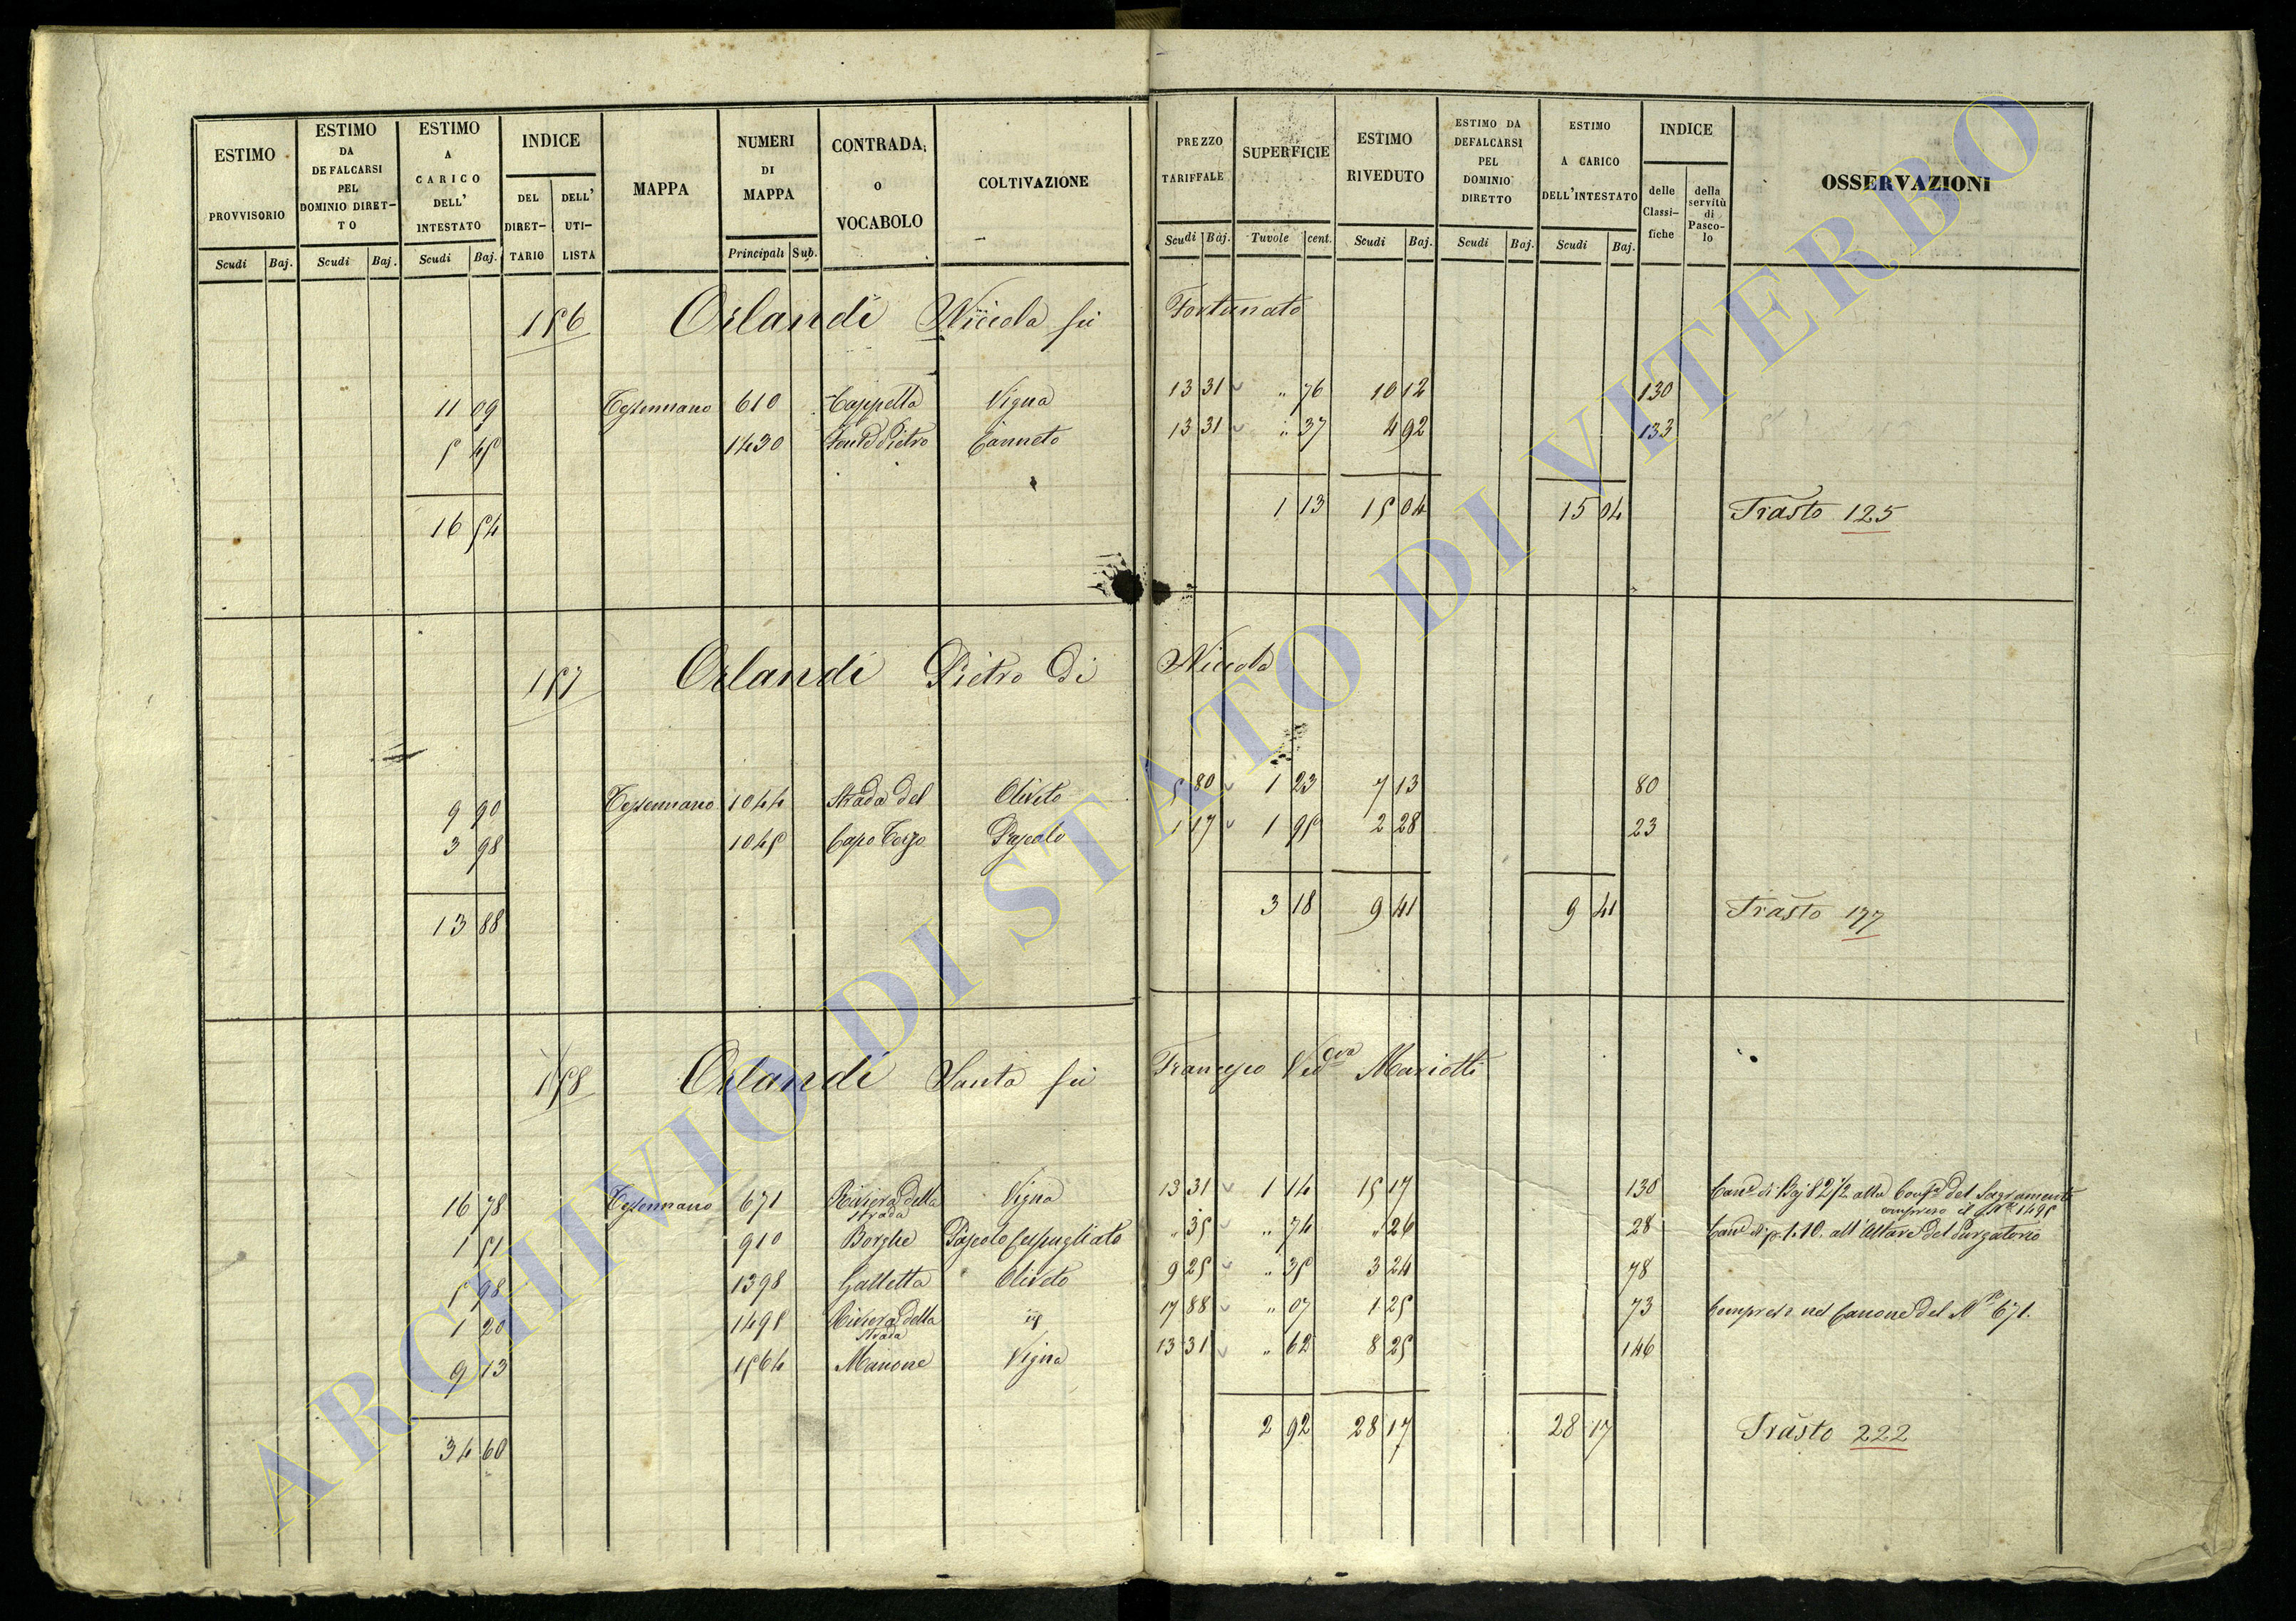 ESTIMO PROVVISORIO Scudi Baj.
ESTIMO DA DEFALCARSI PEL DOMINIO DIRET-TO Scudi Baj.
ESTIMO A CARICO DELL' INTESTATO Scudi Baj.
INDICE DEL DIRET-TARIO DELL' UTI-LISTA
MAPPA
NUMERI DI MAPPA Principali Sub.
CONTRADA, O VOCABOLO
COLTIVAZIONE
PREZZO TARIFFALE Scudi Baj.
SUPERFICIE Tavole cent.
ESTIMO RIVEDUTO Scudi Baj.
ESTIMO DA DEFALCARSI PEL DOMINIO DIRETTO Scudi Baj.
ESTIMO A CARICO DELL'INTESTATO Scudi Baj.
INDICE delle Classi-fiche della servitù di Pasco-lo
OSSERVAZIONI
156 Orlandi Niccola fù Fortunato
11 09 Tessennano 610 Cappella Vigna 13 31 " 76 10 12 130
5 45 1430 Canneto 13 31 " 37 4 92 133
16 54 1 13 15 04 15 04 Trasto 125
157 Orlandi Pietro di Niccola
9 90 Tessennano 1044 Strada del Oliveto 5 80 1 23 7 13 80
3 98 1045 Capo Terzo Pascolo 1 17 1 95 2 28 23
13 88 3 18 9 41 9 41 Trasto 177
158 Orlandi Santa fù Francesco Ved.ova Mariotti
16 78 Tessennano 671 Riviera della Strada Vigna 13 31 1 14 15 17 130 Can.e di Baj 82 1/2 alla Conf.a del Sagramento compreso il N.o 1495
1 51 910 Borghe Pascolo Cespugliato " 35 " 74 " 26 28 Can.e di 1.10. all'Altare del Purgatorio
5 98 1398 Galletta Oliveto 9 25 " 35 3 24 78
1 20 1495 Riviera della Strada id 17 88 " 07 1 25 73 Compreso nel Canone del N.o 671.
9 13 1564 Mainone Vigna 13 31 " 62 8 25 146
34 60 2 92 28 17 28 17 Trasto 222
ARCHIVIO DI STATO DI VITERBO